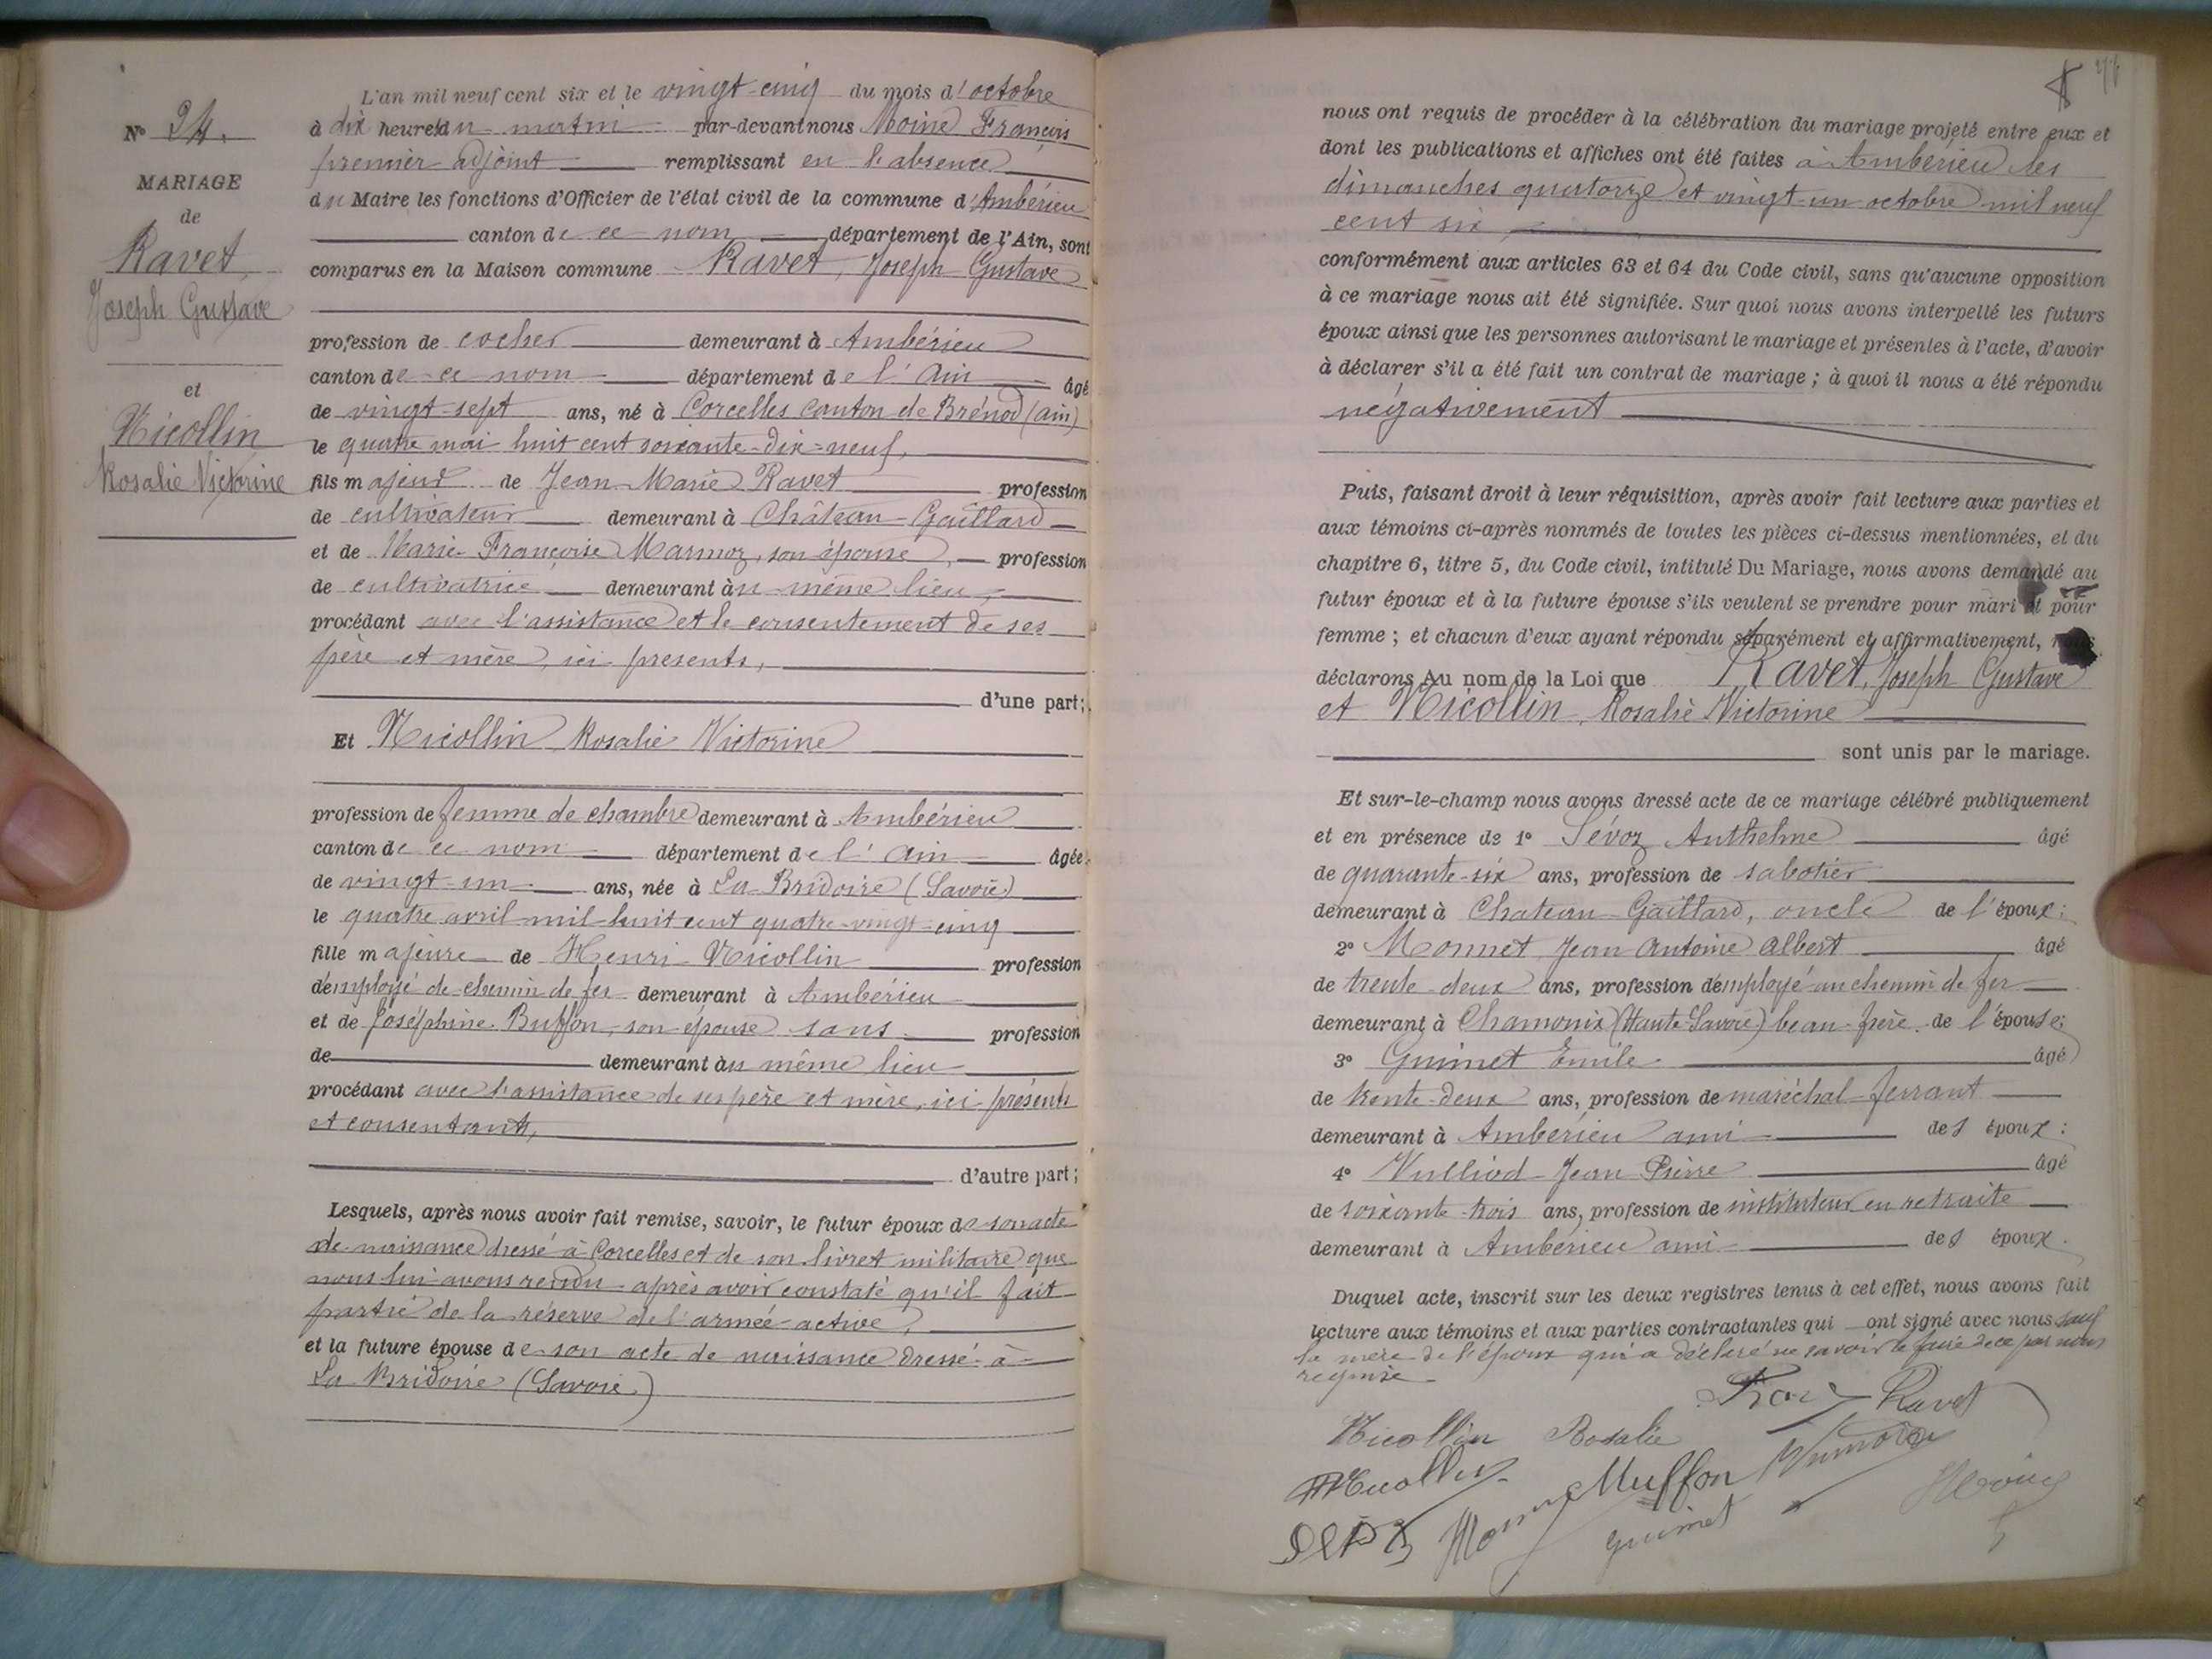 N° 24.
MARIAGE
de
Ravet
Joseph Gustave
et
Nicollin
Rosalie Victorine
L'an mil neuf cent six et le vingt-cinq du mois d'octobre
à dix heures du matin par-devant nous Moine François
premier adjoint remplissant en l'absence
du Maire les fonctions d'Officier de l'état civil de la commune d'Ambérieu
canton de ce nom département de l'Ain, sont
comparus en la Maison commune Ravet, Joseph Gustave
profession de cocher demeurant à Ambérieu
canton de ce nom département de l'Ain âgé
de vingt-sept ans, né à Corcelles canton de Brénod (ain)
le quatre mai huit cent soixante-dix-neuf,
fils majeur de Jean-Marie Ravet profession
de cultivateur demeurant à Château-Gaillard
et de Marie-Françoise Marmoz, son épouse, profession
de cultivatrice demeurant au même lieu,
procédant avec l'assistance et le consentement de ses
père et mère, ici présents,
d'une part;
Et Nicollin Rosalie Victorine
profession de femme de chambre demeurant à Ambérieu
canton de ce nom département de l'Ain âgée
de vingt-un ans, née à La Bridoire (Savoie)
le quatre avril mil huit cent quatre-vingt-cinq
fille majeure de Henri Nicollin profession
d'employé de chemin de fer demeurant à Ambérieu
et de Joséphine Buffon, son épouse sans profession
de demeurant au même lieu
procédant avec l'assistance de ses père et mère, ici présents
et consentants,
d'autre part;
Lesquels, après nous avoir fait remise, savoir, le futur époux de son acte
de naissance dressé à Corcelles et de son livret militaire que
nous lui avons rendu après avoir constaté qu'il fait
partie de la réserve de l'armée active,
et la future épouse de son acte de naissance dressé à
La Bridoire (Savoie)
nous ont requis de procéder à la célébration du mariage projeté entre eux et
dont les publications et affiches ont été faites à Ambérieu les
dimanches quatorze et vingt-un octobre mil neuf
cent six,
conformément aux articles 63 et 64 du Code civil, sans qu'aucune opposition
à ce mariage nous ait été signifiée. Sur quoi nous avons interpellé les futurs
époux ainsi que les personnes autorisant le mariage et présentes à l'acte, d'avoir
à déclarer s'il a été fait un contrat de mariage ; à quoi il nous a été répondu
négativement
Puis, faisant droit à leur réquisition, après avoir fait lecture aux parties et
aux témoins ci-après nommés de toutes les pièces ci-dessus mentionnées, et du
chapitre 6, titre 5, du Code civil, intitulé Du Mariage, nous avons demandé au
futur époux et à la future épouse s'ils veulent se prendre pour mari et pour
femme ; et chacun d'eux ayant répondu séparément et affirmativement, nous
déclarons Au nom de la Loi que Ravet, Joseph Gustave
et Nicollin, Rosalie Victorine
sont unis par le mariage.
Et sur-le-champ nous avons dressé acte de ce mariage célébré publiquement
et en présence de 1° Sévoz Anthelme âgé
de quarante-six ans, profession de sabotier
demeurant à Chateau-Gaillard, oncle de l'époux;
2° Monnet Jean Antoine Albert âgé
de trente-deux ans, profession d'employé au chemin de fer
demeurant à Chamonix (Haute-Savoie) beau-frère de l'épouse;
3° Guimet Emile âgé
de trente-deux ans, profession de maréchal-ferrant
demeurant à Ambérieu ami des époux :
4° Vulliod Jean Pierre âgé
de soixante-trois ans, profession de instituteur en retraite
demeurant à Ambérieu ami des époux.
Duquel acte, inscrit sur les deux registres tenus à cet effet, nous avons fait
lecture aux témoins et aux parties contractantes qui ont signé avec nous sauf
la mère de l'époux qui a déclaré ne savoir le faire de ce par nous
requise
Ravet
Nicollin Rosalie
Nicollin
Buffon
Guimet
Moine